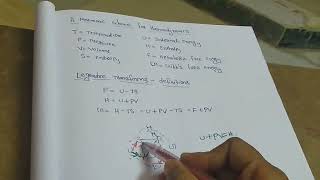 A mnemonic scheme for thermodynamics
T = Temperature U = Internal energy
P = Pressure H = Enthalpy
V = Volume F = free energy
S = entropy G = Gibb's free energy
Legendre Transforms - definitions
F = U - TS
H = U + PV
G = H - TS = U + PV - TS = F + PV
U + PV = H